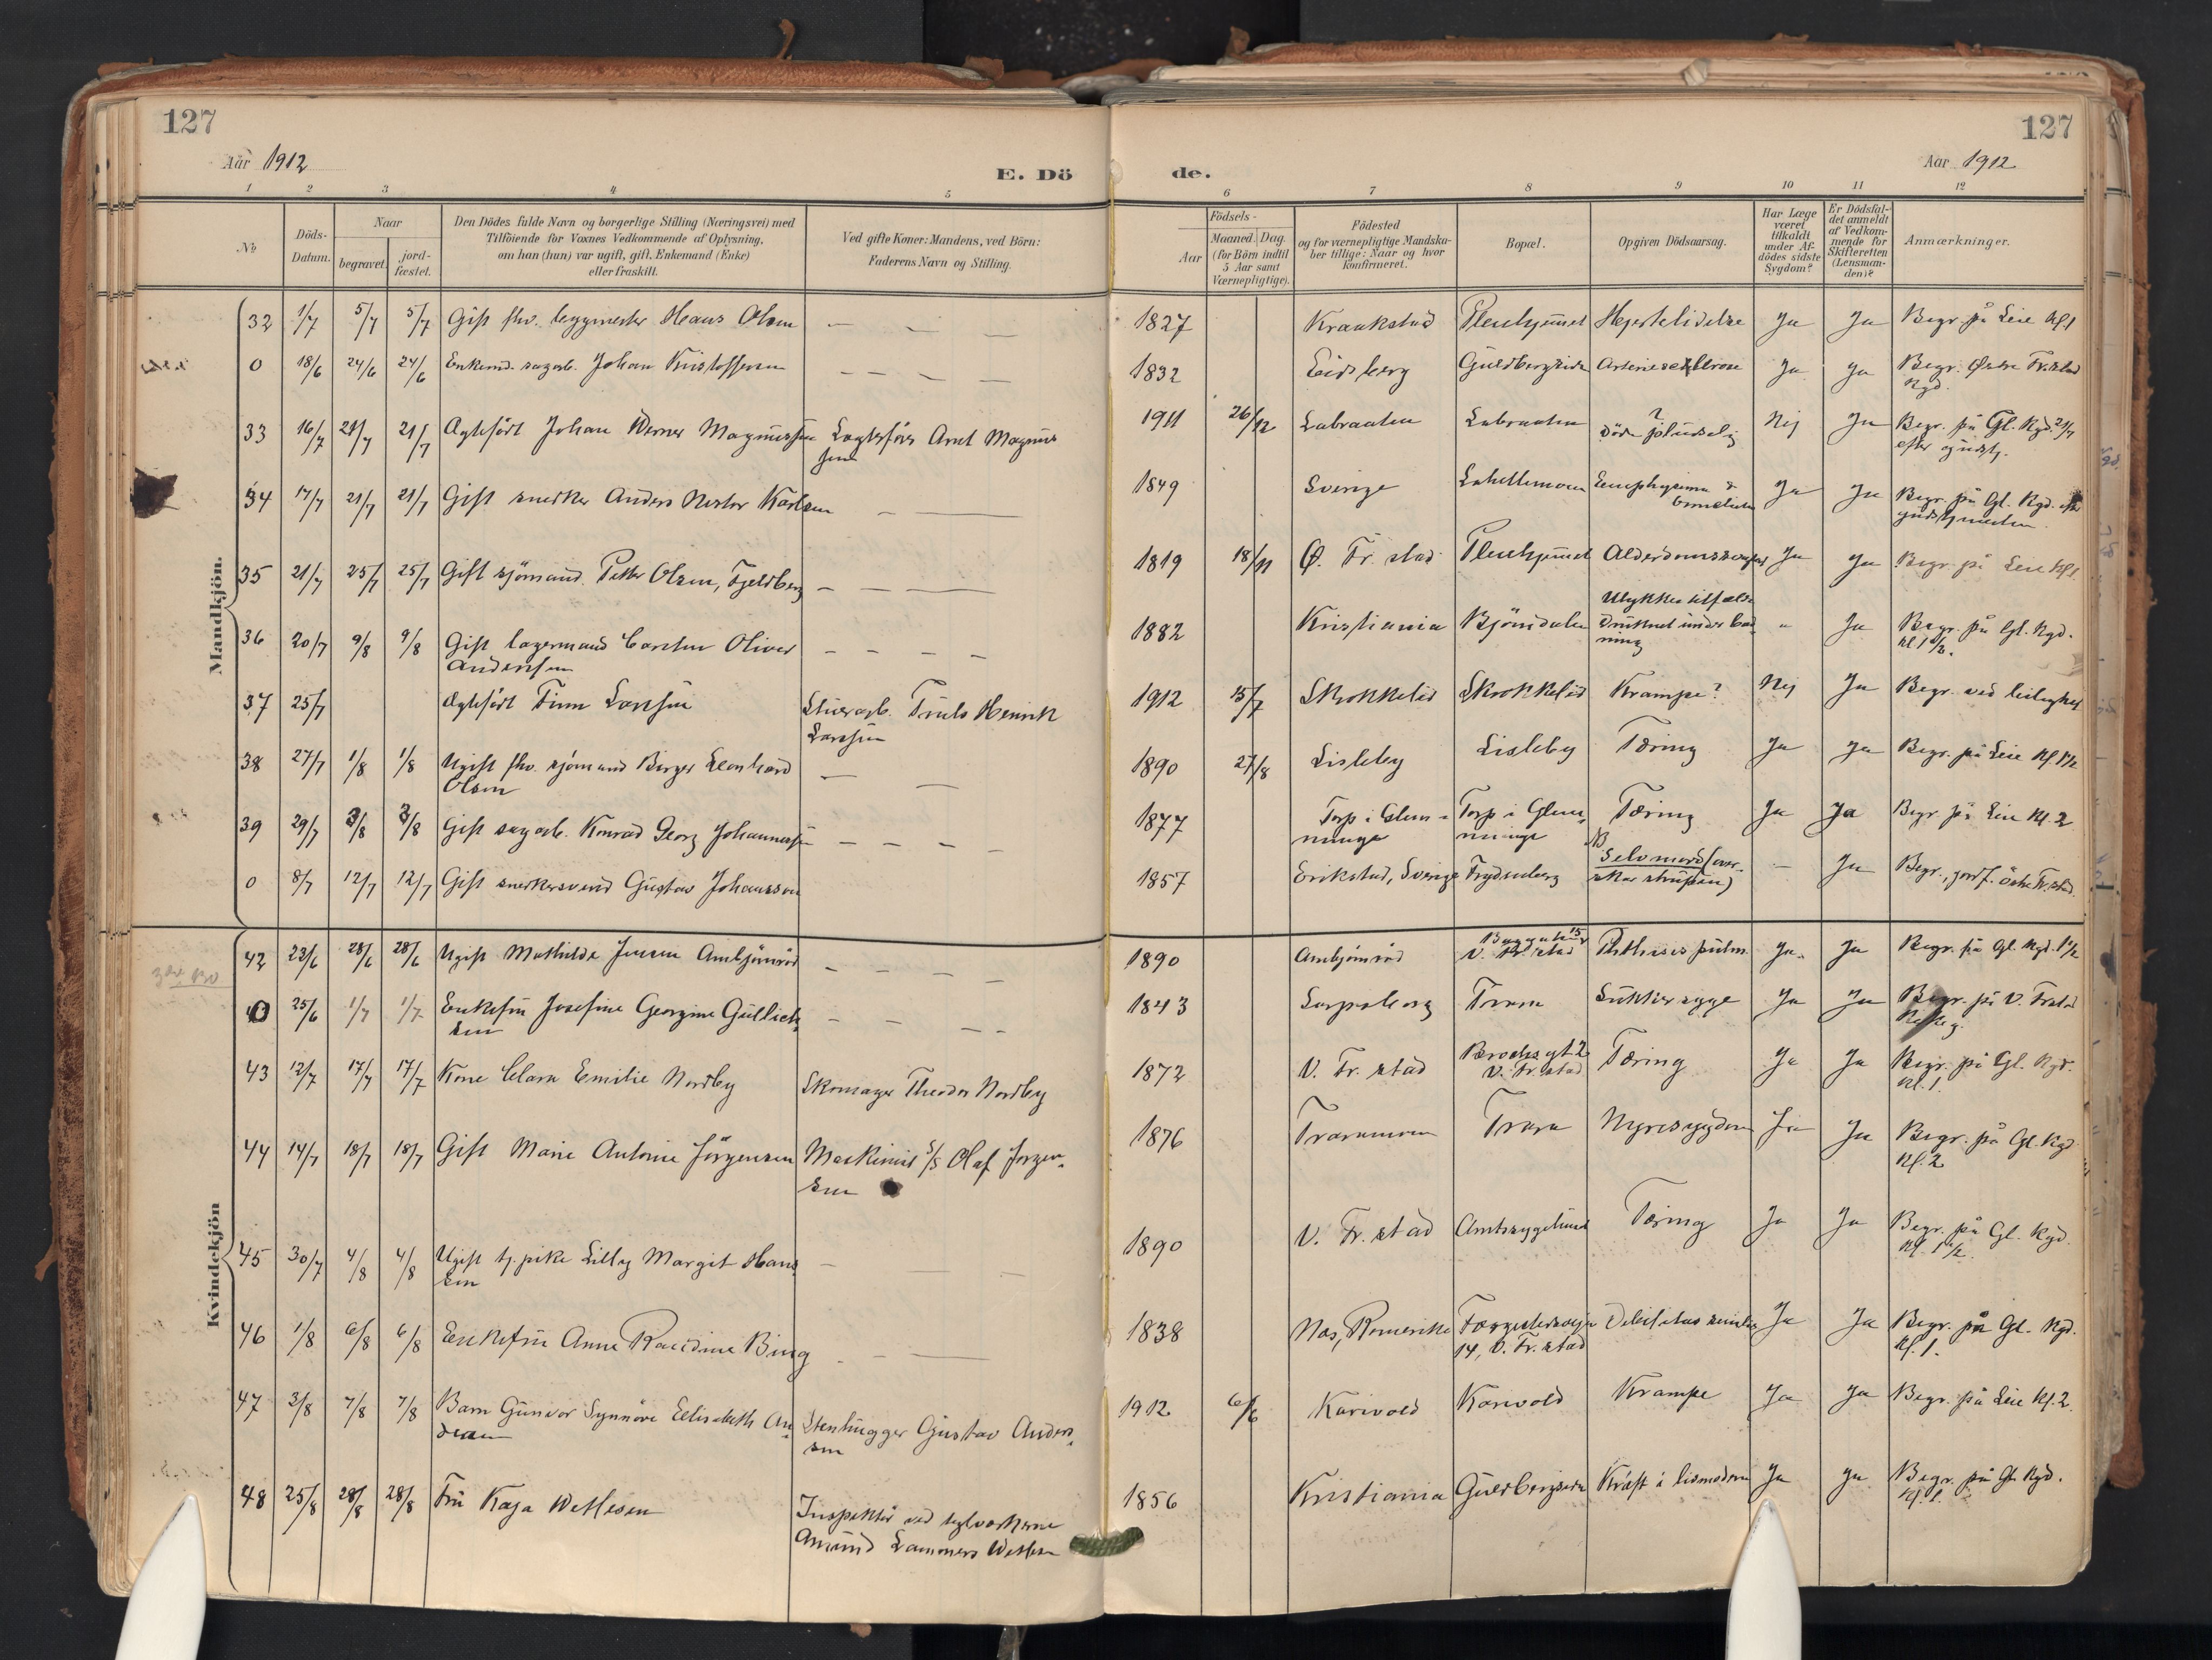 127
127
Aar 1912
E. Dö
de.
Aar 1912
1 2 3 4 5 6 7 8 9 10 11 12
No
Döds-Datum.
Naar
begravet.
jord-fæstet.
Den Dödes fulde Navn og borgerlige Stilling (Næringsvei) med
Tilföiende for Voxnes Vedkommende af Oplysning,
om han (hun) var ugift, gift, Enkemand (Enke)
eller fraskilt.
Ved gifte Koner: Mandens, ved Börn:
Faderens Navn og Stilling.
Födsels-
Aar
Maaned. Dag.
(for Börn indtil
5 Aar samt
Værnepligtige).
Födested
og for værnepligtige Mandska-
ber tillige: Naar og hvor
konfirmeret.
Bopæl.
Opgiven Dödsaarsag.
Har Læge
været
tilkaldt
under Af-
dödes sidste
Sygdom?
Er Dödsfal-
det anmeldt
af Vedkom-
mende for
Skifteretten
(Lensman-
den)?
Anmærkninger.
Mandkjön.
32 1/7 5/7 5/7 Gift fhv. byggmester Hans Olsen 1827 Kraakstad Pleiehjemmet Hjertelidelse Ja Ja Begr. på Leie Kl. 1
0 18/6 24/6 24/6 Enkemd. sagarb. Johan Kristoffersen 1832 Eidsberg Guldbergsiden Arteriesclerose Ja Ja Begr. Østre Fr.stad
Kgd.
33 16/7 21/7 21/7 Ægtefödt Johan Werner Magnussen Arnt Magnus
sen 1911 26/12 Labraaten Labraaten ?
Döde pludselig Nej Ja Begr. på Gl. Kgd. 21/7
efter gudstj.
34 17/7 21/7 21/7 Gift snedker Anders Nestor Karlsen 1849 Sverige Emphysema & Ja Ja Begr. på Gl. Kgd. efter
gudstjenesten.
35 21/7 25/7 25/7 Gift sjömand. Petter Olsen, Fjeldberg 1819 18/11 Ø. Fr. stad Pleiehjemmet Ja Ja Begr. på Leie Kl. 1
36 20/7 9/8 9/8 Gift lagermand Carsten Oliver
Andersen 1882 Kristiania Bjørndalen Ulykkestilfælde
Druknet under bad
ning " Ja Begr. på Gl. Kgd.
Kl. 1 1/2.
37 25/7 Ægtefödt Finn Larssen Truls Henrik
Larssen 1912 25/7 Skrokkelid Skrokkelid Krampe? Nej Ja Begr. ved leilighet
38 27/7 1/8 1/8 Ugift fhv. sjömand Birger Leonhard
Olsen 1890 27/8 Lisleby Lisleby Tæring Ja Ja Begr. på Leie Kl. 1 1/2
39 29/7 3/8 3/8 Gift sagarb. Konrad Georg Johannessen 1877 Torp i Glem-
minge Torp i Glem-
minge Tæring Ja Ja Begr. på Leie Kl. 2
0 8/7 12/7 12/7 Gift snedkersvend Gustav Johansson 1857 Erikstad, Sverige Frydenberg NB
Selvmord (over-
skar strupen) — Ja Begr., jordf. Östre Fr.stad.
Kvindekjön
42 23/6 28/6 28/6 Ugift Mathilde Jensen Ambjörnröd 1890 Ambjörnröd V. Fr. stad Phthisis pulm. Ja. Ja Begr. på Gl. Kgd. 1 1/2
0 25/6 1/7 1/7 Enkefru Josefine Georgine Gullich-
sen 1843 Sarpsborg Trara Sukkersyge Ja Ja Begr. på V. Fr.stad
43 12/7 17/7 17/7 Kone Clara Emilie Nordby Skomager Theodor Nordby 1872 V. Fr. stad Brochsgt. 2
V. Fr. stad Tæring Ja Ja Begr. på Gl. Kgd.
Kl. 1.
44 14/7 18/7 18/7 Gift Marie Antonie Jörgensen Maskinist S/S Olaf Jörgen-
sen 1876 Traramoen Trara Nyresygdom Ja Ja Begr. på Gl. Kgd
Kl. 2
45 30/7 4/8 4/8 Ugift tj.pike Lilly Margit Han-
sen 1890 V. Fr. stad Amtssygehuset Tæring Ja Ja Begr. på Gl. Kgd.
Kl. 1 1/2.
46 1/8 6/8 6/8 Enkefru Anne Randine Bing 1838 Nes, Romerike
14, V. Fr. stad Debilitas senilis Ja Ja Begr. på Gl. Kgd.
Kl. 1.
47 3/8 7/8 7/8 Barn Gunvor Synnöve Elisabeth An-
dersen Stenhugger Gustav Ander-
sen 1912 6/6 Karivold Karivold Krampe Ja Ja Begr. på Leie Kl. 2.
48 25/8 28/8 28/8 Fru Kaja Wetlesen Inspektör ved teglverkerne
Amund Lammers Wetlesen 1856 Kristiania Guldbergsiden Kræft i livmoderen Ja Ja Begr. på Gl. Kgd.
Kl. 1.